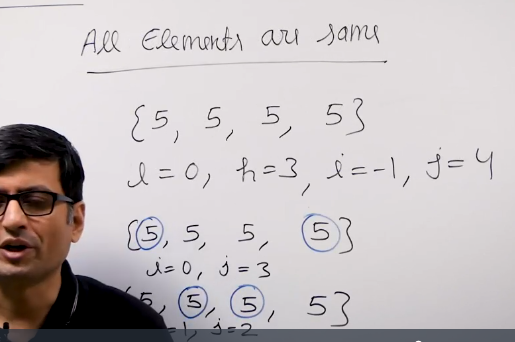 All Elements are same
{5, 5, 5, 5}
l=0, h=3, i=-1, j=4
{5, 5, 5, 5}
i=0, j=3
{5, 5, 5, 5}
=1, j=2